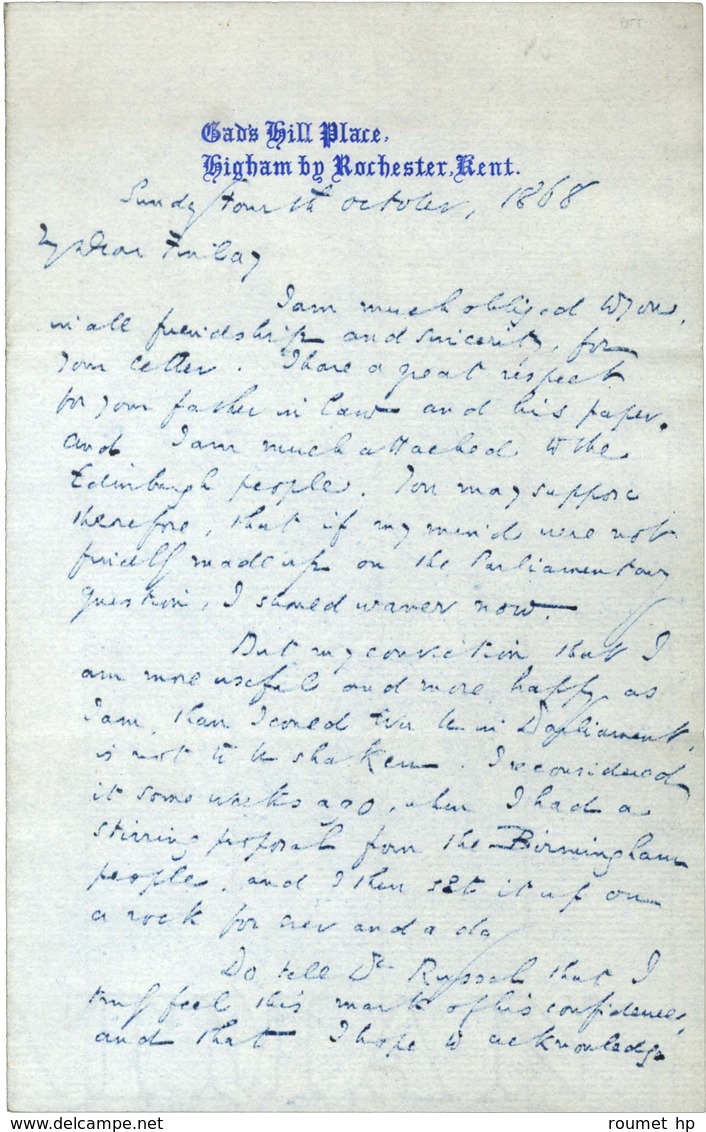 Gad's Hill Place,
Higham by Rochester, Kent.
Sunday fourth October, 1868
My Dear Finlay
I am much obliged to you,
in all friendship and sincerity, for
your letter. I have a great respect
for your father in law and his paper,
and I am much attached to the
Edinburgh people. You may suppose
therefore, that if my mind were not
fully made up on the Parliamentary
question, I should waver now.
But my conviction that I
am more useful and more happy as
I am, than I could ever be in Parliament,
is not to be shaken. I reconsidered
it some weeks ago, when I had a
stirring proposal from the Birmingham
people, and I then set it up on
a rock for ever and a day
Do tell Mr Russel that I
truly feel this mark of his confidence,
and that I hope to acknowledge
roumet hp